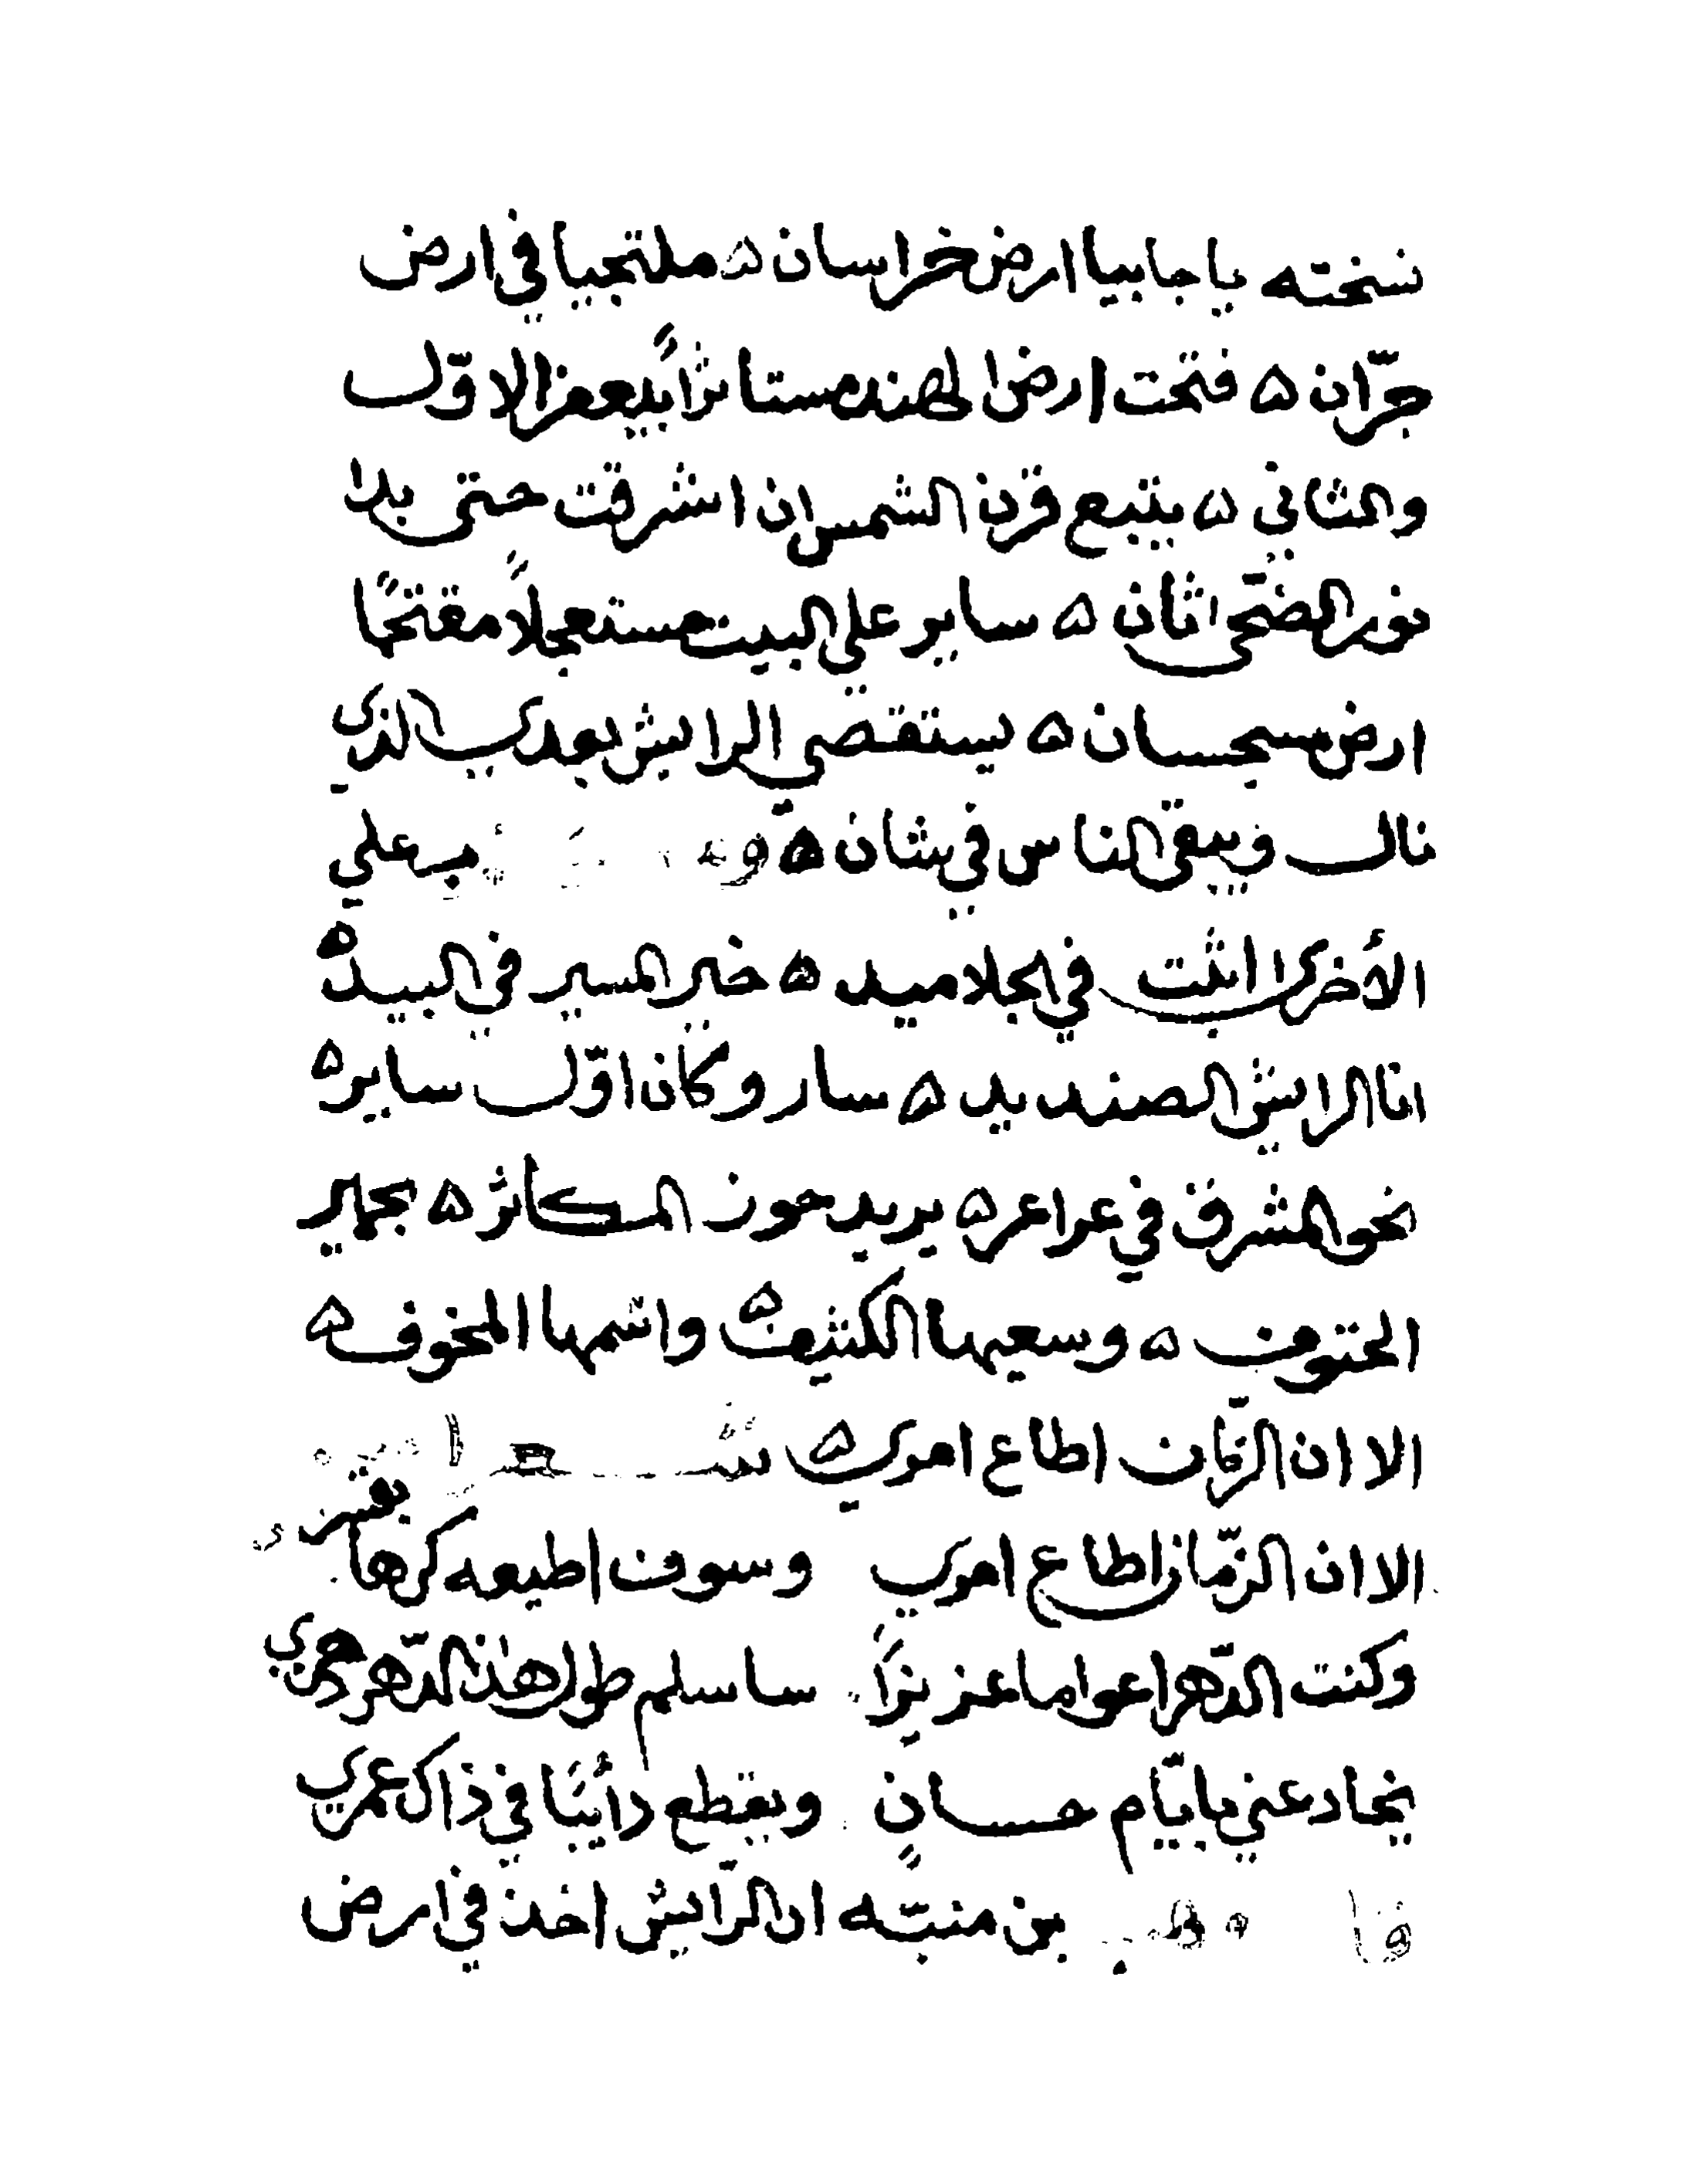 نسخته ياجابيا ارض خراسان ه ملتجيا في ارض
جرّان ه فتحت ارض الهند مستاثراً بيعفر الاوّل
والثاني ه يتبع قرن الشمس ان اشرقت حتى بدا
نور الضحى اثان ه ساير على البيت مستعجلاً مفتتحًا
ارض سجسان ه يستقصي الرايش بعدي الذي
نال ويبقى الناس في شان ه على
الأخرى ابثت في الجلاميد ه خير المسير في البيد ه
انا الرايش الصنديد ه سار وكان اوّل ساير ه
نحو المشرق في عراعر ه يريد حوز المكاثر ه بجمير
الحتوف ه وسعيها الكثيف ه واسمها المخوف ه
الا ان الزمّان اطاع امري ه شعرا
الا ان الزمّان اطاع امري وسوف اطيعه كرها بقسر
وكنت الدّهر اعواما عزيزاً ساسلم طول هذا الدّهر دهري
يخادعني بايّام حسانٍ ويقطع دائبًا في ذاك عمري
بن منبّه ان الرّايش اخذ في ارض